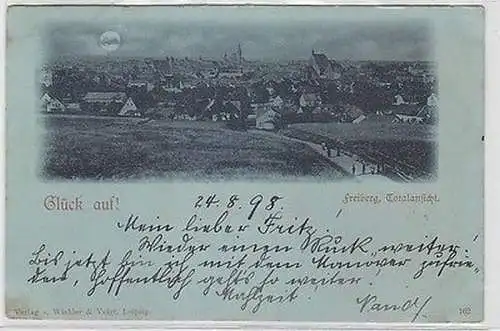 Glück auf!
Freiberg, Totalansicht.
24.8.98.
Mein lieber Fritz!
Wieder einen Ruck weiter!
Bis jetzt bin ich mit dem Manöver zufrie-
den, hoffentlich geht's so weiter.
Mahlzeit.
Verlag v. Winkler & Voigt, Leipzig.
162